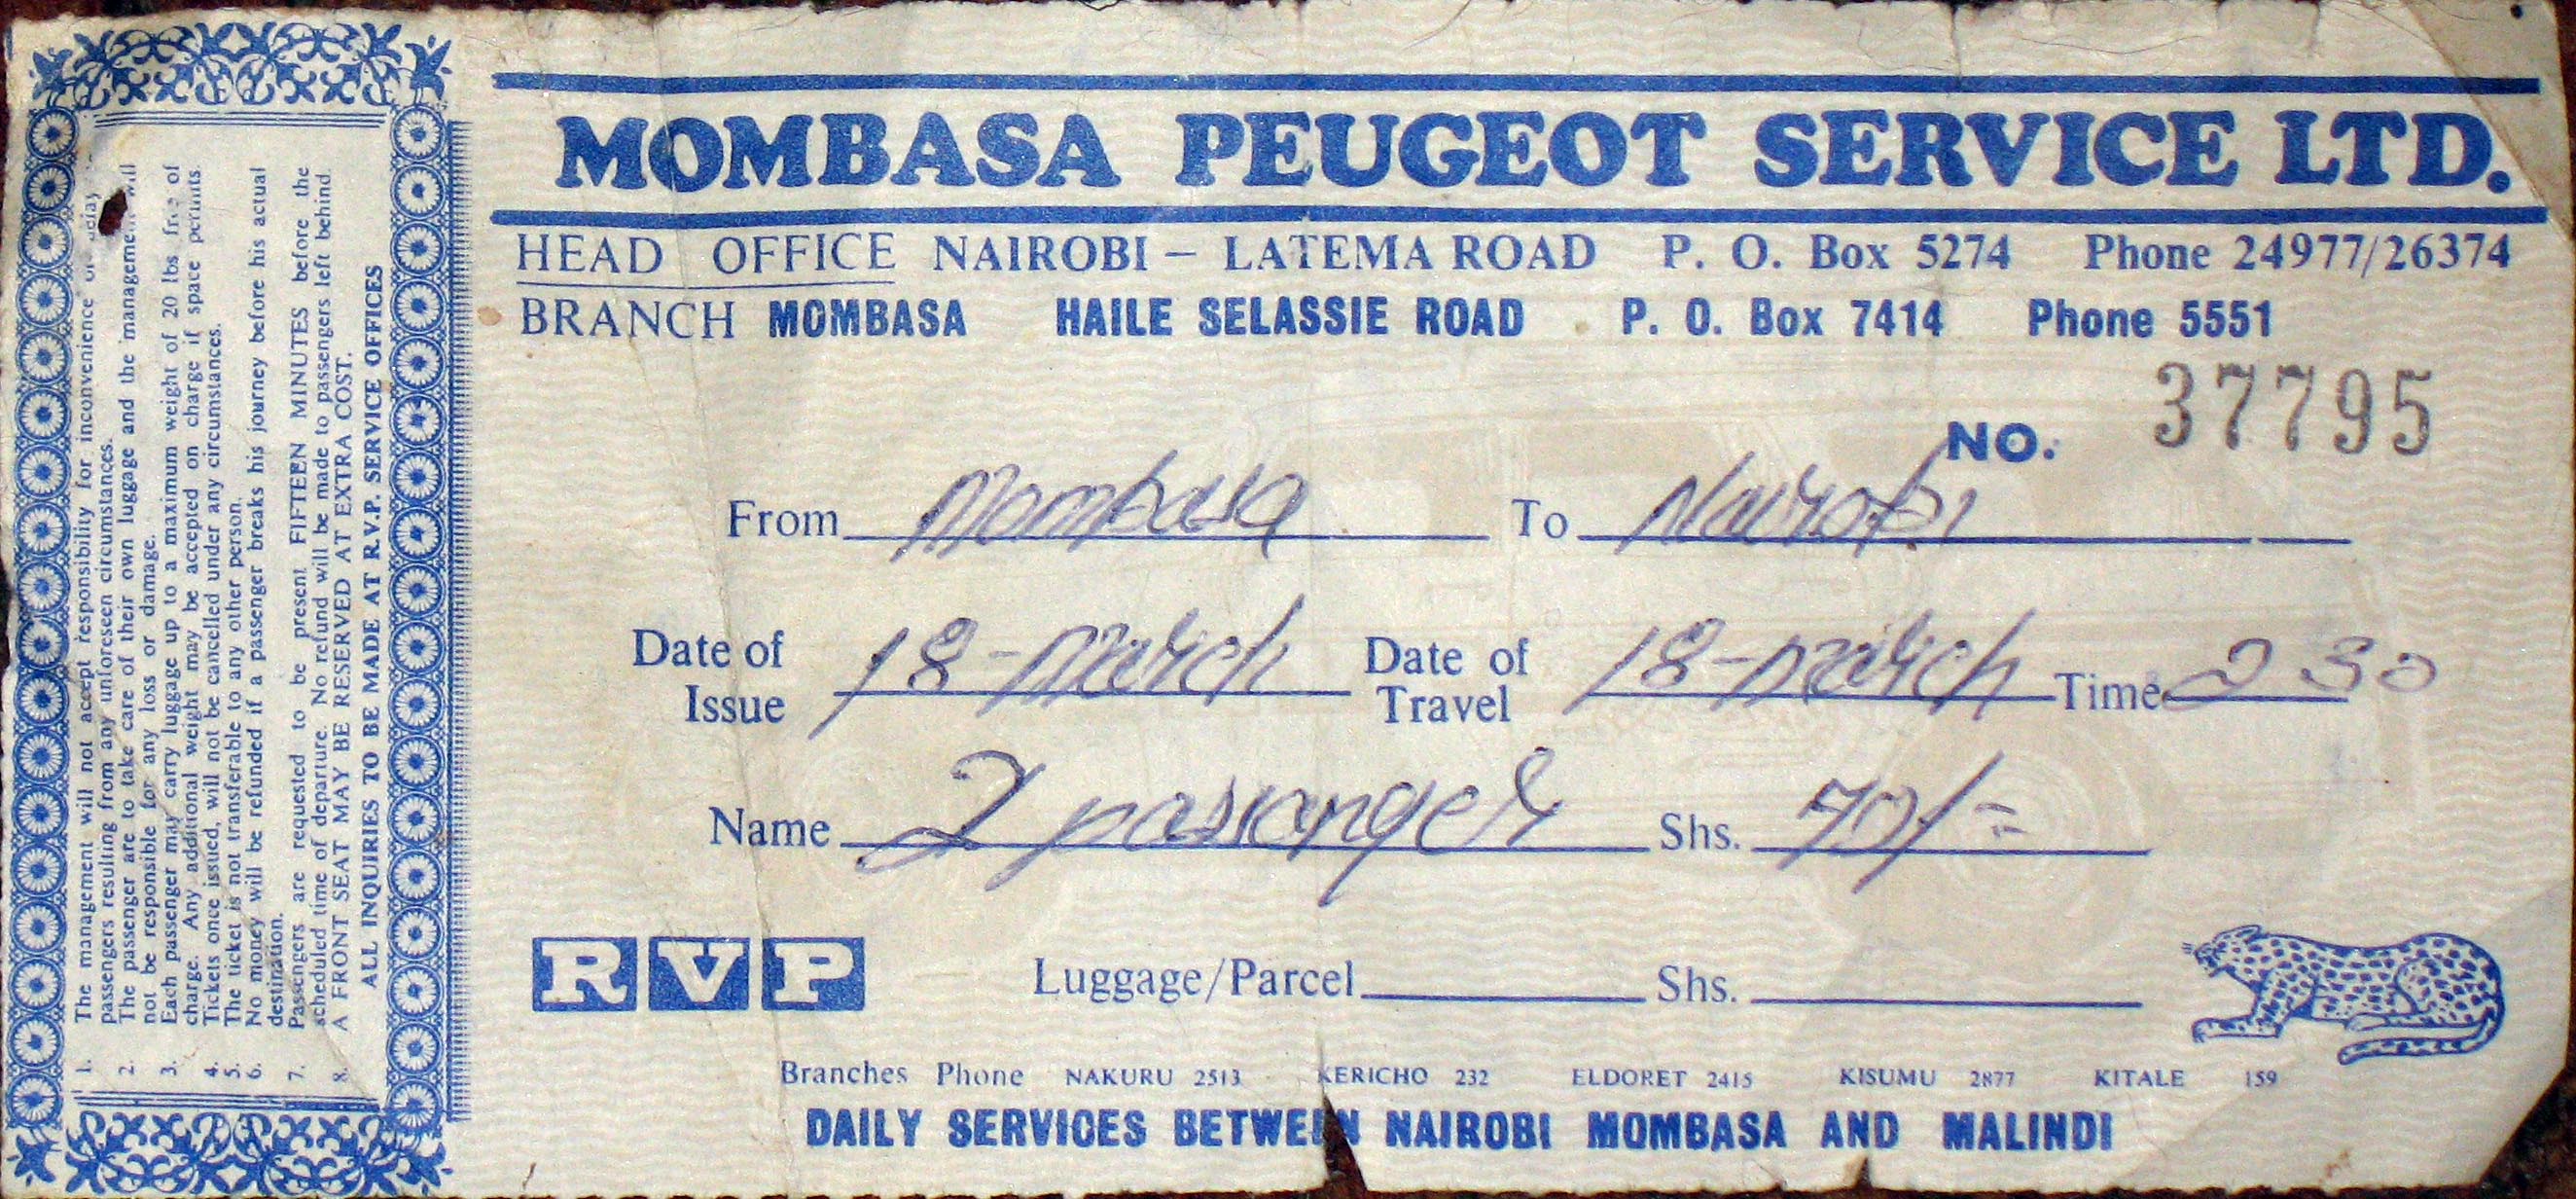 MOMBASA PEUGEOT SERVICE LTD.
HEAD OFFICE NAIROBI – LATEMA ROAD P. O. Box 5274 Phone 24977/26374
BRANCH MOMBASA HAILE SELASSIE ROAD P. O. Box 7414 Phone 5551
NO. 37795
From Mombasa To Nairobi
Date of Issue 18-March Date of Travel 18-March Time 2 30
Name 2 passanger Shs. 70/=
RVP Luggage/Parcel Shs.
Branches Phone NAKURU 2513 KERICHO 232 ELDORET 2415 KISUMU 2877 KITALE 159
DAILY SERVICES BETWEEN NAIROBI MOMBASA AND MALINDI
1. The management will not accept responsibility for inconvenience or delay
passengers resulting from any unforeseen circumstances.
2. The passenger are to take care of their own luggage and the management will
not be responsible for any loss or damage.
3. Each passenger may carry luggage up to a maximum weight of 20 lbs free of
charge. Any additional weight may be accepted on charge if space permits.
4. Tickets once issued, will not be cancelled under any circumstances.
5. The ticket is not transferable to any other person.
6. No money will be refunded if a passenger breaks his journey before his actual
destination.
7. Passengers are requested to be present FIFTEEN MINUTES before the
scheduled time of departure. No refund will be made to passengers left behind.
8. A FRONT SEAT MAY BE RESERVED AT EXTRA COST.
ALL INQUIRIES TO BE MADE AT R.V.P. SERVICE OFFICES